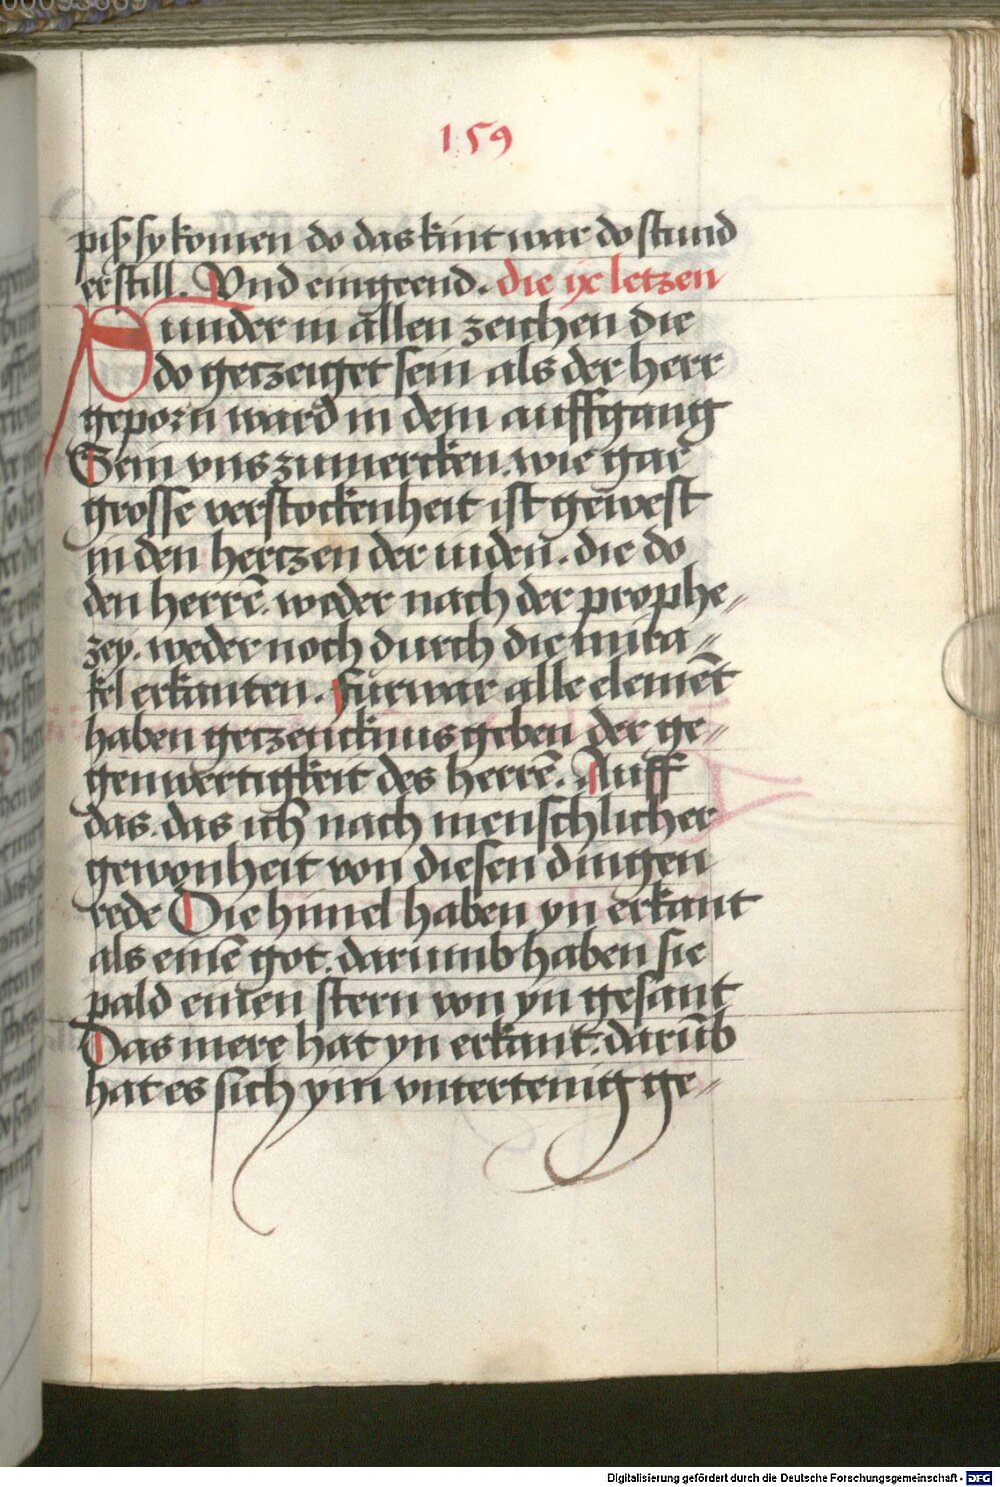 00093669
159
piß sy komen do das kint war do stund
er still. Vnd eingeend. die ix letzen
Aunder in allen zeichen die
do geczeiget sein als der herr
geporn ward in dem auffgang
Sein vns zumercken. wie gar
grosse verstockenheit ist gewest
in den hertzen der iuden. die do
den herrē. weder nach der prophe⸗
zey. weder noch durch die mira⸗
kel erkanten. furwar alle elemēt
haben geczeucknus geben der ge⸗
genwertigkeit des herrē. Auff
das. das ich nach menschlicher
gewonheit von diesen dingen
rede Die himel haben yn erkant
als einē got. darumb haben sie
pald einen stern von yn gesant
Das mere hat yn erkant. darūb
hat es sich ym vntertenig ge⸗
Digitalisierung gefördert durch die Deutsche Forschungsgemeinschaft - DFG